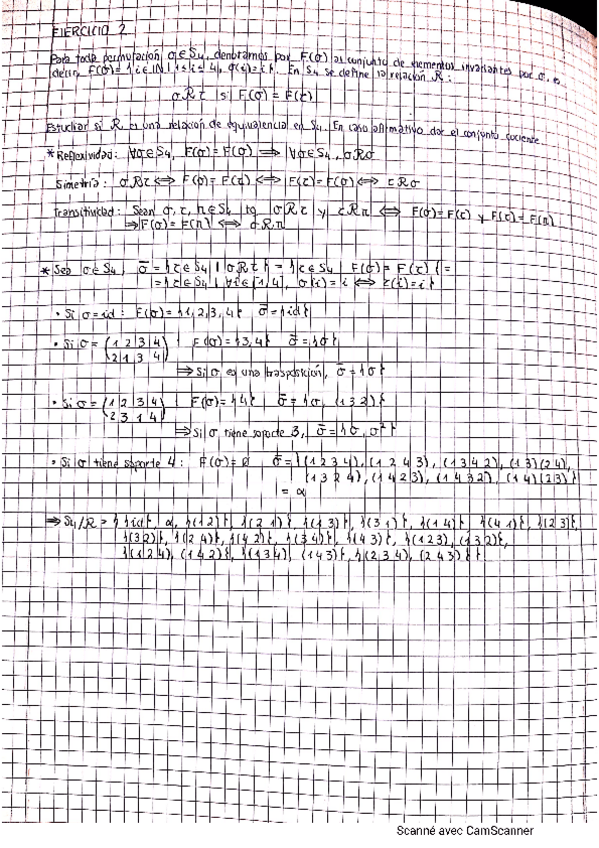 EJERCICIO 2
Para toda permutación σ∈S₄, denotamos por F(σ) al conjunto de elementos invariantes por σ, es
decir, F(σ) = {i∈ℕ | 1≤i≤4, σ(i)=i}. En S₄ se define la relación R:
σRτ si F(σ) = F(τ)
Estudiar si R es una relación de equivalencia en S₄. En caso afirmativo dar el conjunto cociente.
* Reflexividad: ∀σ∈S₄, F(σ)=F(σ) ⟹ ∀σ∈S₄, σRσ
Simetría: σRτ ⟺ F(σ)=F(τ) ⟺ F(τ)=F(σ) ⟺ τRσ
Transitividad: Sean σ, τ, η∈S₄ tq σRτ y τRη ⟺ F(σ)=F(τ) y F(τ)=F(η)
⟹ F(σ)=F(η) ⟺ σRη
* Sea σ∈S₄, σ̄ = {τ∈S₄ | σRτ} = {τ∈S₄ | F(σ)=F(τ)} =
= {τ∈S₄ | ∀i∈[1,4], σ(i)=i ⟺ τ(i)=i}
• Si σ=id: F(σ)={1,2,3,4} σ̄={id}
• Si σ = (1 2 3 4 : F(σ)={3,4} σ̄={σ}
2 1 3 4)
⟹ Si σ es una trasposición, σ̄={σ}
• Si σ = (1 2 3 4 : F(σ)={4} σ̄={σ, (1 3 2)}
2 3 1 4)
⟹ Si σ tiene soporte 3, σ̄={σ, σ²}
• Si σ tiene soporte 4: F(σ)=∅ σ̄={(1 2 3 4), (1 2 4 3), (1 3 4 2), (1 3)(2 4),
(1 3 2 4), (1 4 2 3), (1 4 3 2), (1 4)(2 3)}
= α
⟹ S₄/R = {{id}, α, {(1 2)}, {(2 1)}, {(1 3)}, {(3 1)}, {(1 4)}, {(4 1)}, {(2 3)},
{(3 2)}, {(2 4)}, {(4 2)}, {(3 4)}, {(4 3)}, {(1 2 3), (1 3 2)},
{(1 2 4), (1 4 2)}, {(1 3 4), (1 4 3)}, {(2 3 4), (2 4 3)}}
Scanné avec CamScanner